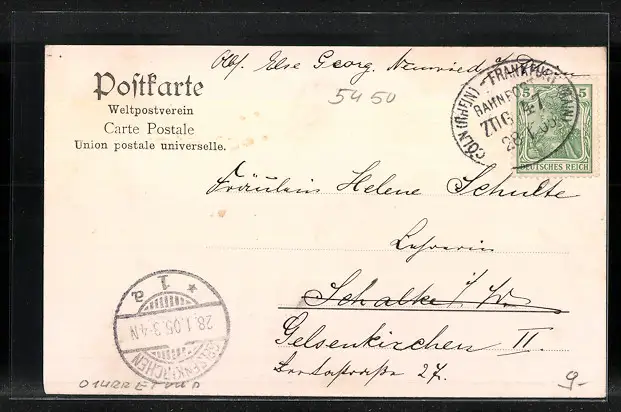 Abs. Else Georg. Neuwied a/Rhein
5450
Postkarte
Weltpostverein
Carte Postale
Union postale universelle.
CÖLN (RHEIN) - FRANKFURT (MAIN)
BAHNPOST
ZUG 47
28.1.05
5 5
DEUTSCHES REICH
Fräulein Helene Schulte
Lehrerin
Schalke i/W.
Gelsenkirchen II.
27.
* 1 a
28.1.05.3-4N
GELSENKIRCHEN
9-